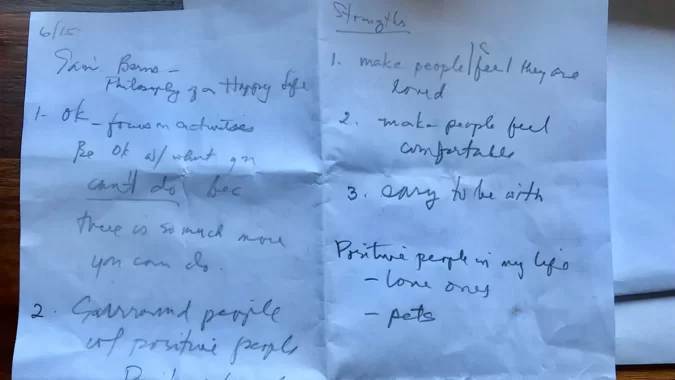 6/15
Sam Berns -
Philosophy of a Happy Life
1- OK - focus on activities
Be OK w/ what you
can't do bec
there is so much more
you can do.
2. Surround people
w/ positive people
Strengths
1. make people feel they are
loved
2. make people feel
comfortable
3. easy to be with
Positive people in my life
- love ones
- pets